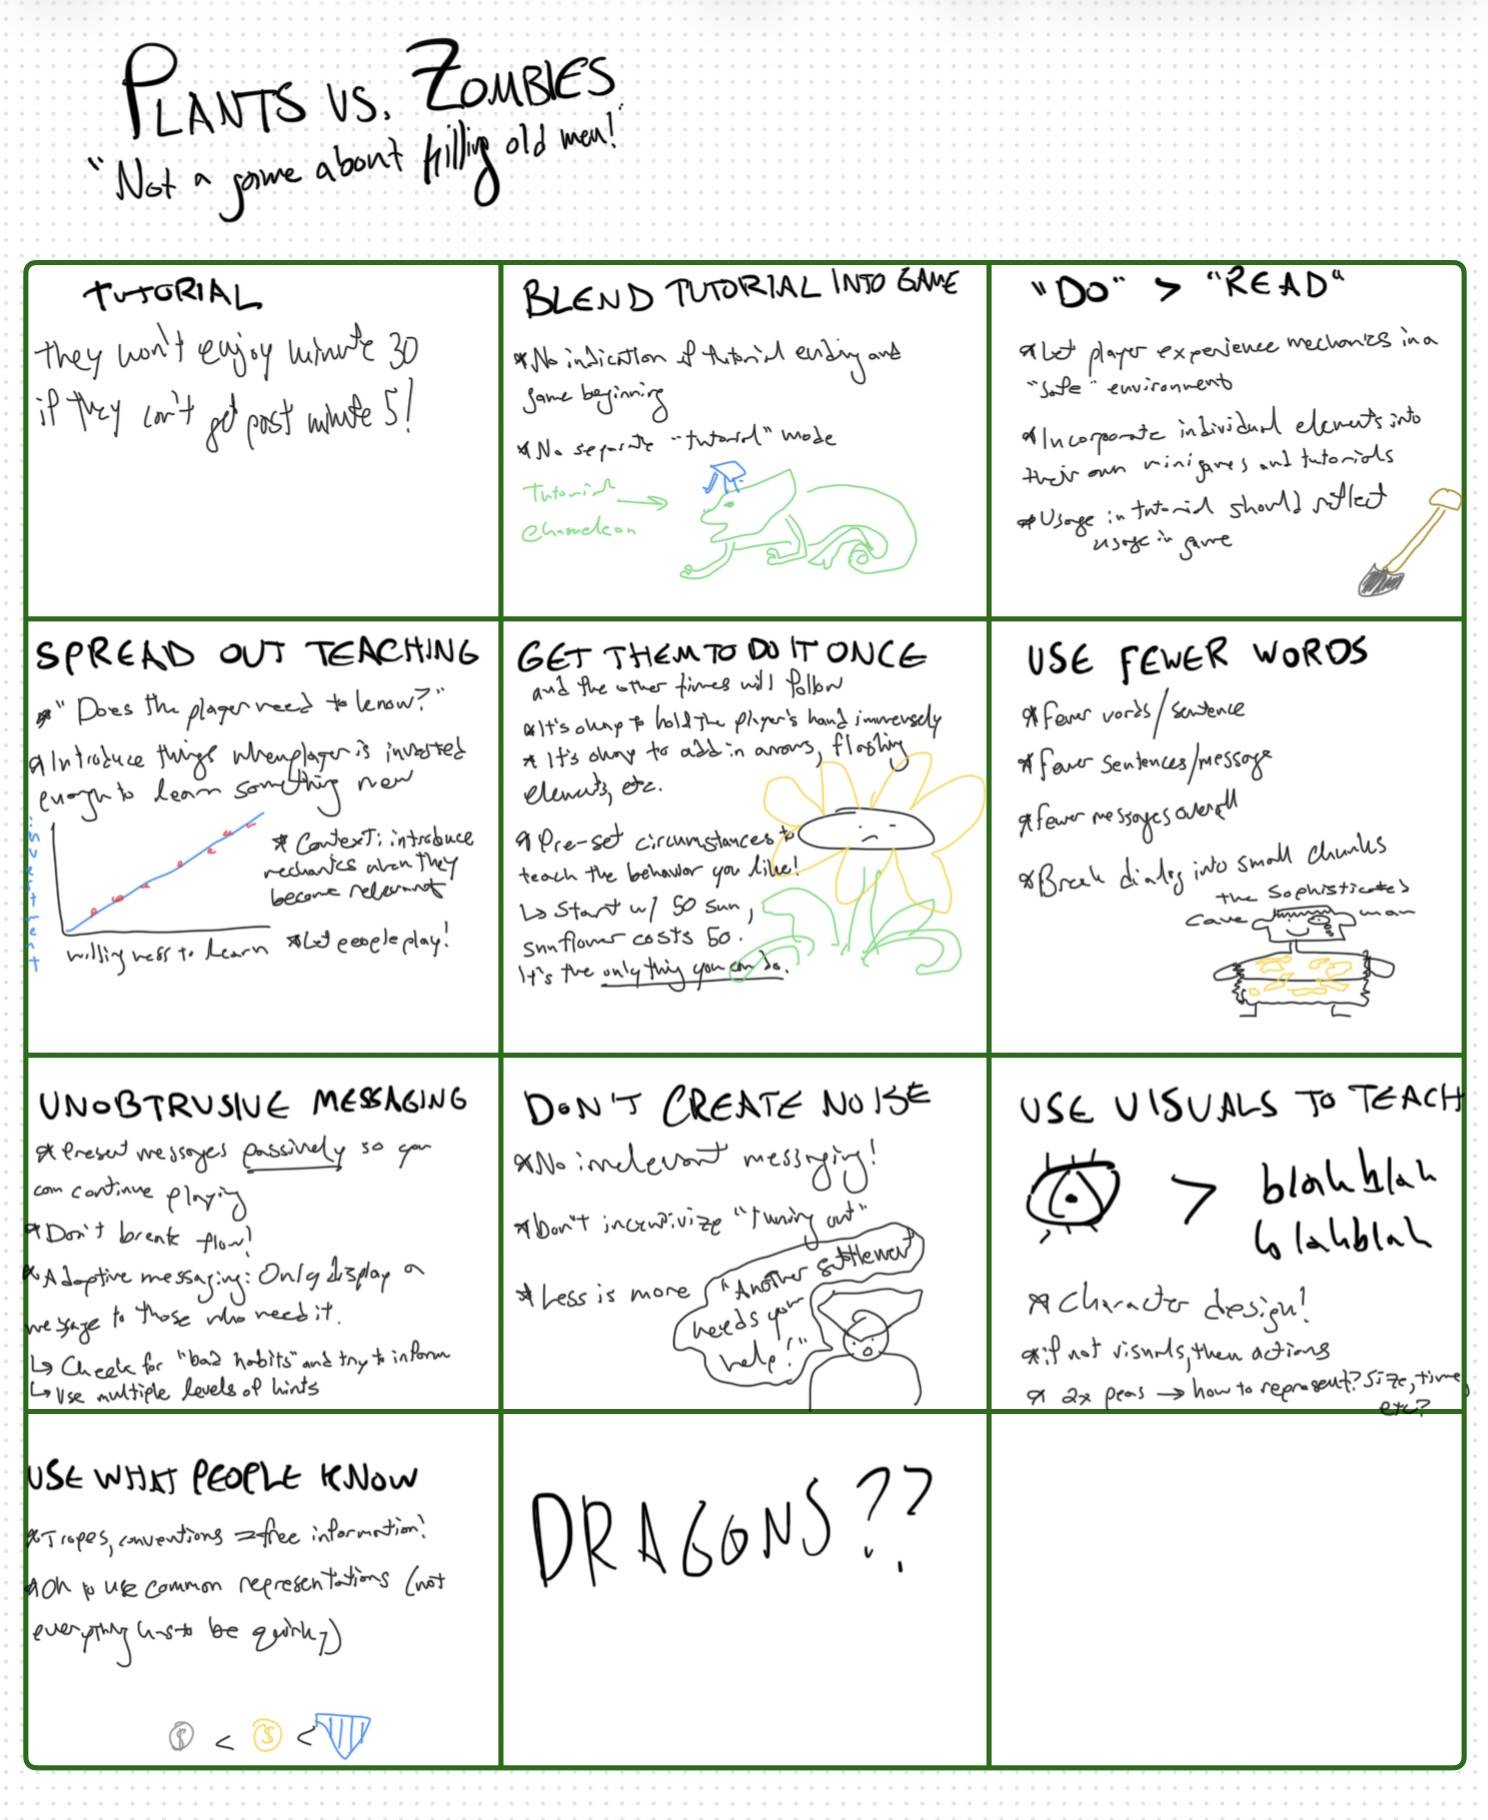 PLANTS VS. ZOMBIES
"Not a game about killing old men!"
TUTORIAL
They won't enjoy minute 30
if they can't get past minute 5!
BLEND TUTORIAL INTO GAME
*No indication of tutorial ending and
game beginning
*No separate "tutorial" mode
Tutorial
Chameleon
"DO" > "READ"
*Let player experience mechanics in a
"safe" environment
*Incorporate individual elements into
their own minigames and tutorials
*Usage in tutorial should reflect
usage in game
SPREAD OUT TEACHING
*"Does the player need to know?"
*Introduce things when player is invested
enough to learn something new
investment
*Context: introduce
mechanics when they
become relevant
willingness to learn
*Let people play!
GET THEM TO DO IT ONCE
and the other times will follow
*It's okay to hold the player's hand immensely
*It's okay to add in arrows, flashing
elements, etc.
*Pre-set circumstances to
teach the behavior you like!
↳ Start w/ 50 sun,
sunflower costs 50.
It's the only thing you can do.
USE FEWER WORDS
*Fewer words/sentence
*Fewer sentences/message
*fewer messages overall
*Break dialog into small chunks
the sophisticated
cave man
UNOBTRUSIVE MESSAGING
*Present messages passively so you
can continue playing
*Don't break flow!
*Adaptive messaging: Only display a
message to those who need it.
↳ Check for "bad habits" and try to inform
↳ Use multiple levels of hints
DON'T CREATE NOISE
*No irrelevant messaging!
*Don't incentivize "tuning out"
*Less is more
"Another settlement
needs your
help!"
USE VISUALS TO TEACH
> blahblah
blahblah
*Character design!
*if not visuals, then actions
* 2x peas → how to represent? Size, time,
etc?
USE WHAT PEOPLE KNOW
*Tropes, conventions = free information!
*Ok to use common representations (not
everything has to be quirky)
$ < $ <
DRAGONS??